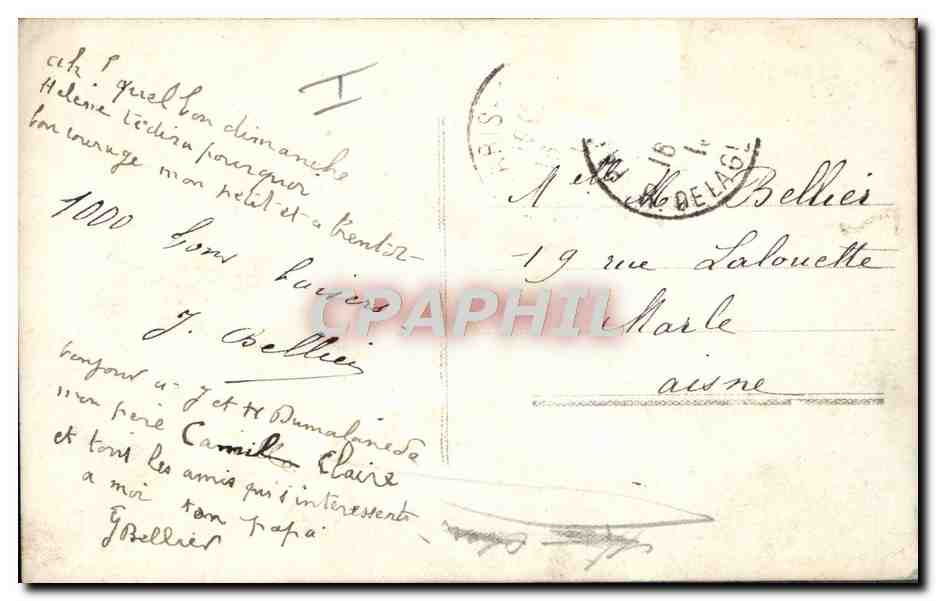 ah ! quel bon dimanche
Helene te dira pourquoi
bon courage mon petit et a bientôt
1000 bons baisers
J. Bellier
bonjour a J et H
mon père Camille Claire
et tous les amis qui s'interessent
a moi ton papa
J Bellier
PARIS
16
R. DE LAGI
Melle M. Bellier
19 rue Lalouette
Marle
aisne
CPAPHIL